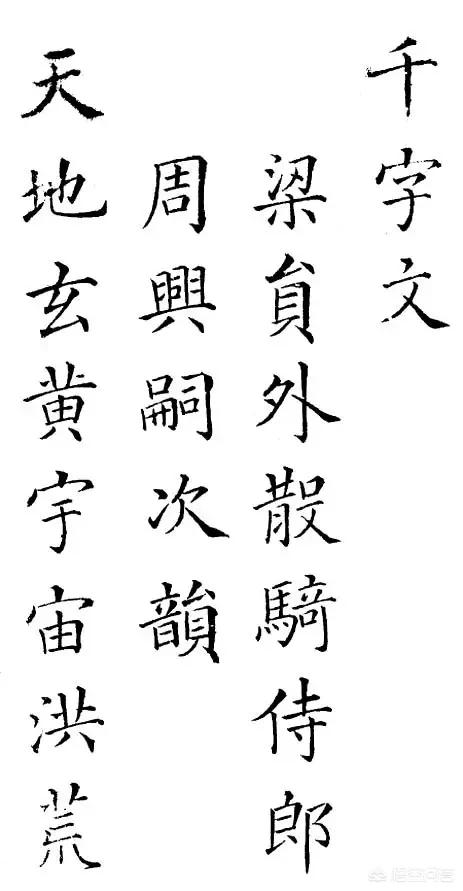 千字文
梁貟外散騎侍郎
周興嗣次韻
天地玄黄宇宙洪荒
悟空问答